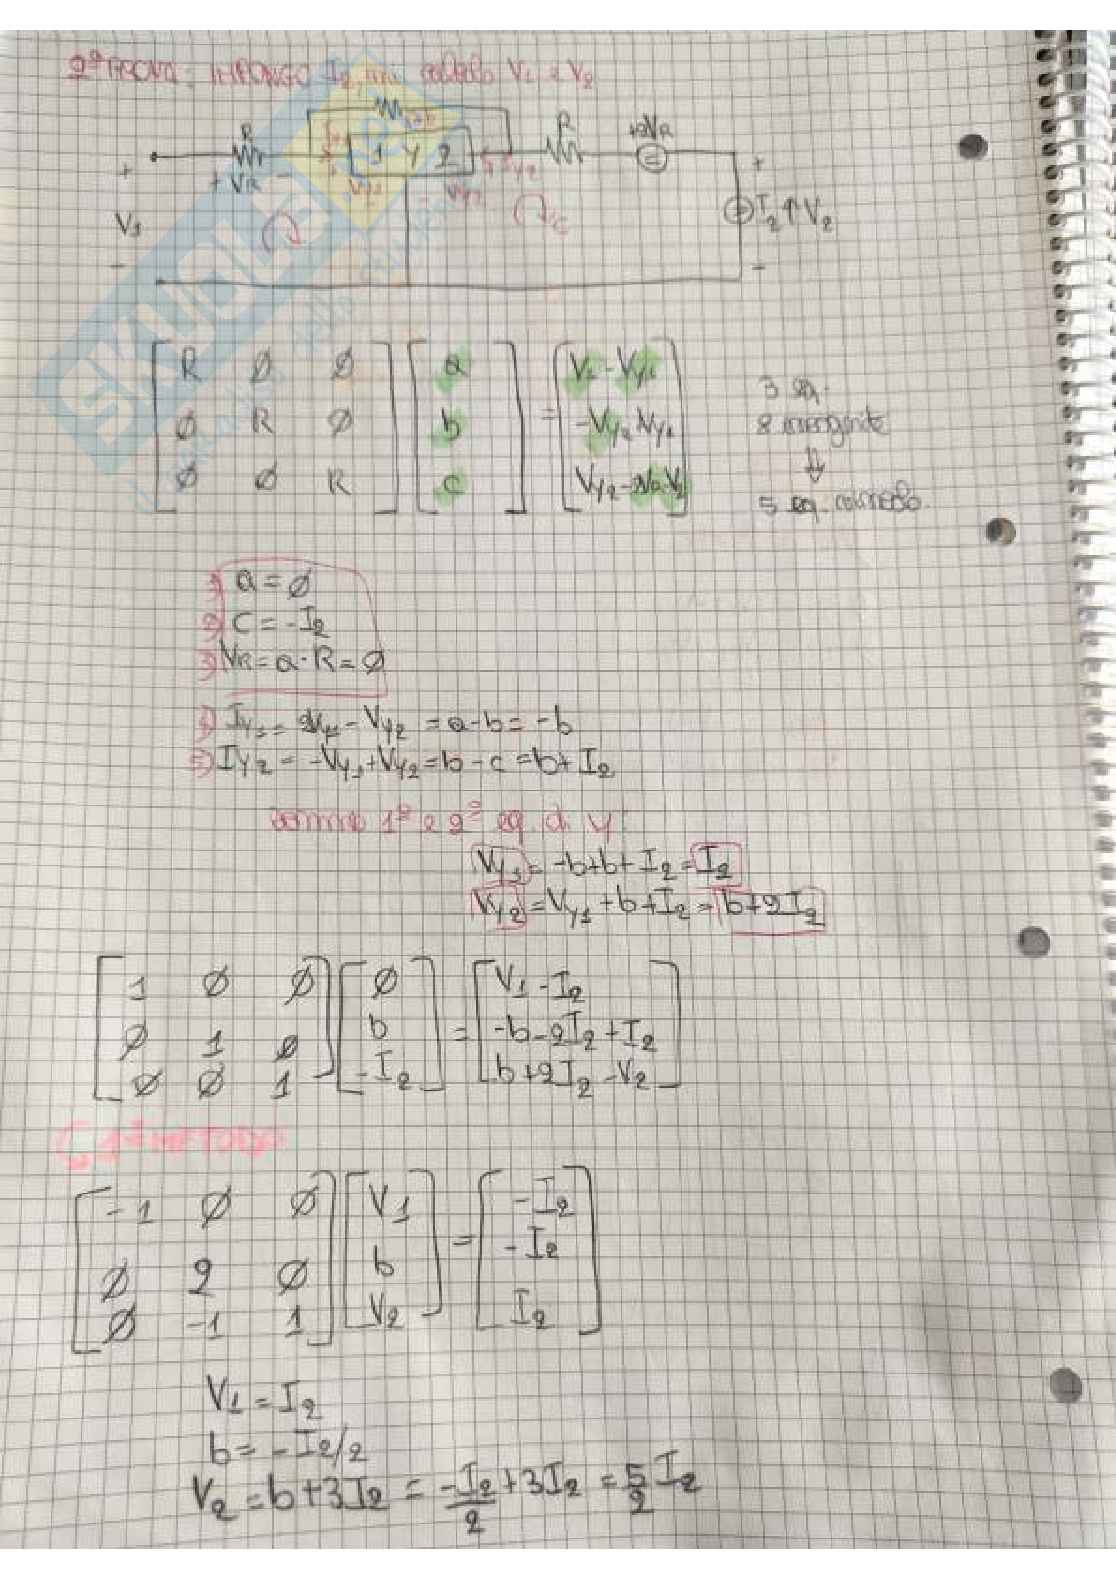 2ª PROVA: IMPONGO I₂, mi calcolo V₁ e V₂
R
R
+2VR
+ VR -
1 Y 2
+
V₁
-
Vy₁
Vy₂
Iy₂
c
+
I₂ ↑ V₂
-
[R ∅ ∅] [a] = [V₁ - Vy₁]
[∅ R ∅] [b] = [-Vy₂+Vy₁]
[∅ ∅ R] [c] = [Vy₂-2VR-V₂]
3 eq.
8 incognite
⇓
5 eq. comodo
1) a = ∅
2) c = -I₂
3) VR = a · R = ∅
4) Iy₁ = 2Vy₁ - Vy₂ = a - b = -b
5) Iy₂ = -Vy₁ + Vy₂ = b - c = b + I₂
sommo 1ª e 2ª eq. di Y:
Vy₁ = -b+b+I₂ = I₂
Vy₂ = Vy₁ + b + I₂ = b+2I₂
[1 ∅ ∅] [∅] = [V₁ - I₂]
[∅ 1 ∅] [b] = [-b-2I₂+I₂]
[∅ ∅ 1] [-I₂] = [b+2I₂-V₂]
1° METODO
[-1 ∅ ∅] [V₁] = [-I₂]
[∅ 2 ∅] [b] = [-I₂]
[∅ -1 1] [V₂] = [I₂]
V₁ = I₂
b = -I₂/2
V₂ = b+3I₂ = -I₂/2 + 3I₂ = 5/2 I₂